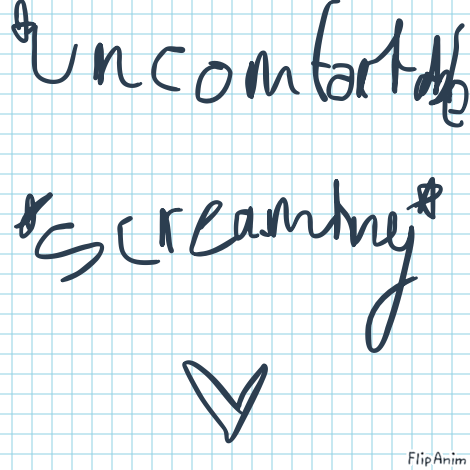 *uncomfortable
*screaming*
FlipAnim